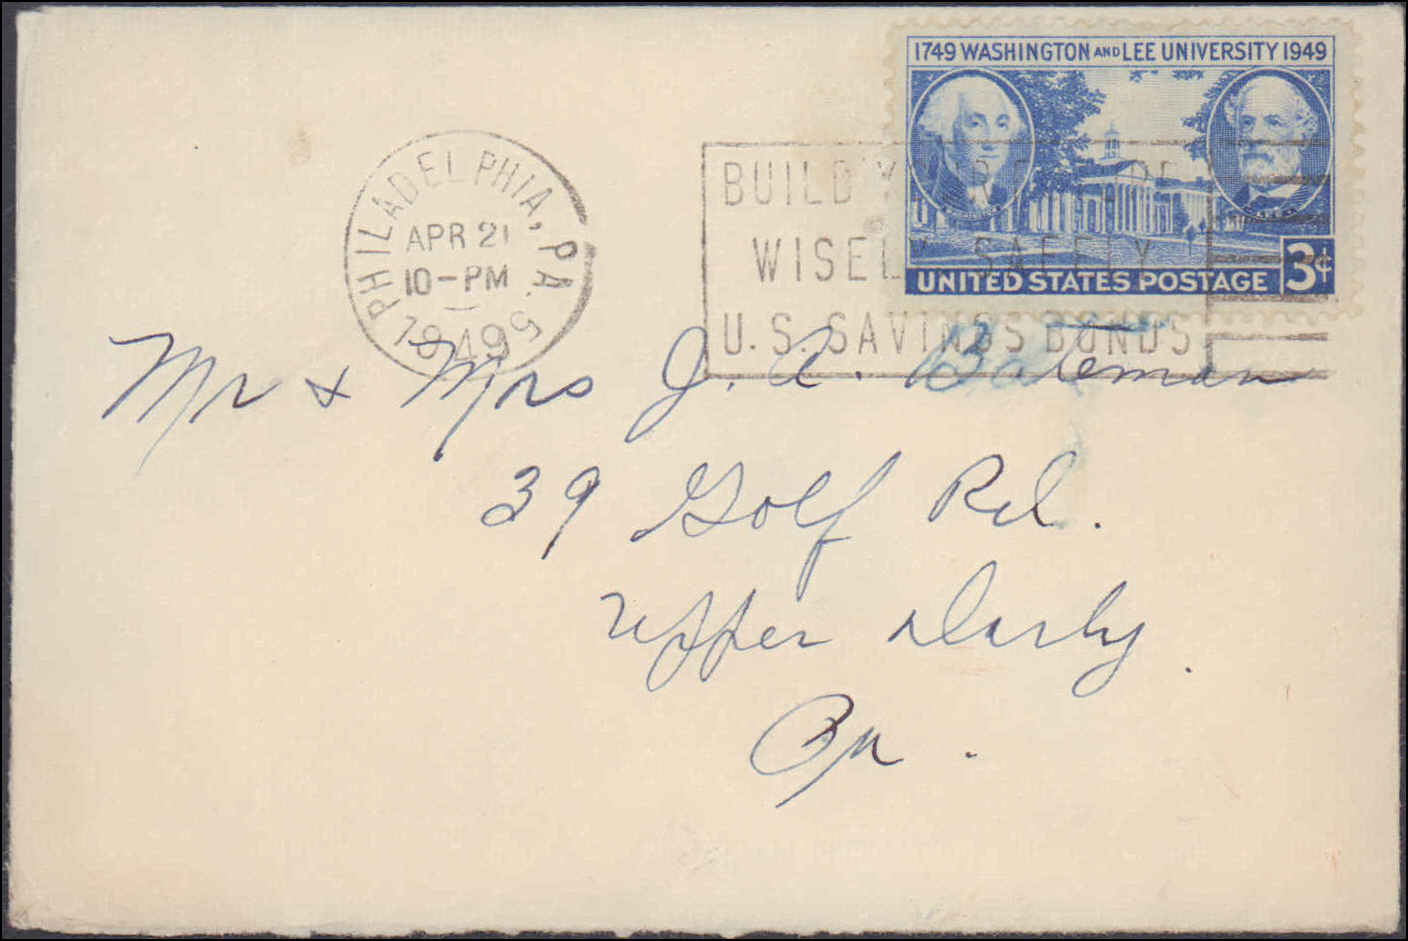 1749 WASHINGTON AND LEE UNIVERSITY 1949
UNITED STATES POSTAGE 3¢
PHILADELPHIA, PA.
APR 21
10-PM
1949
BUILD YOUR FUTURE
WISELY SAFELY
U.S. SAVINGS BONDS
Mr & Mrs J. A. Bateman
39 Golf Rd.
Upper Darby.
Pa.